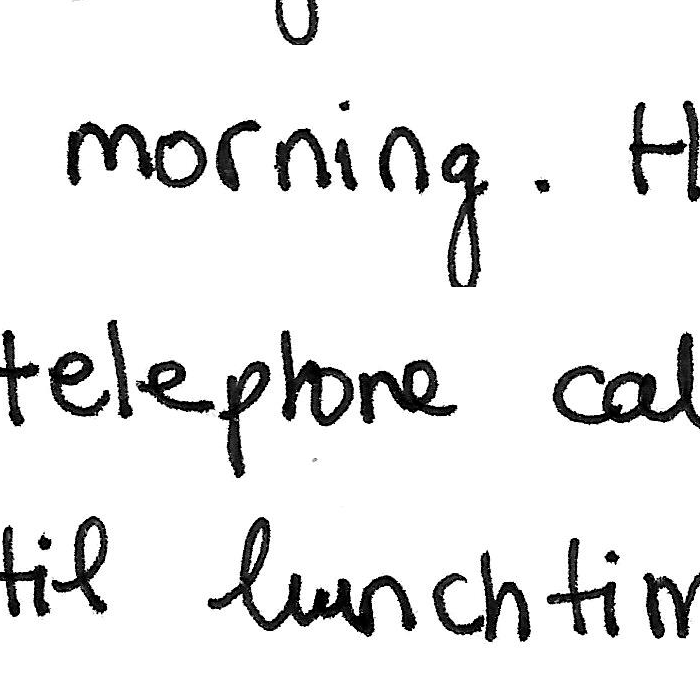 morning. H
telephone cal
til lunchtim